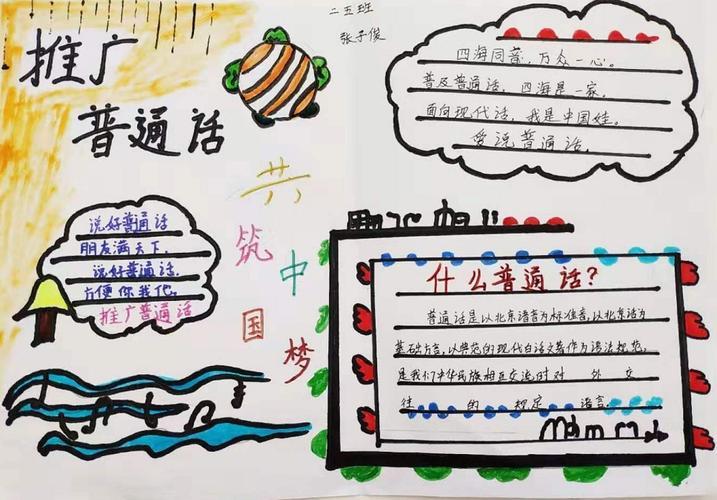 推广
普通话
二五班
张子俊
四海同音，万众一心。
普及普通话，四海是一家。
面向现代话，我是中国娃。
爱说普通话。
共筑中国梦
说好普通话
朋友满天下，
说好普通话，
方便你我他。
推广普通话
什么普通话？
普通话是以北京语音为标准音，以北京话为
基础方言，以典范的现代白话文著作为语法规范，
是我们中华民族相互交流，时对 外 交
往 的 规定 语言.